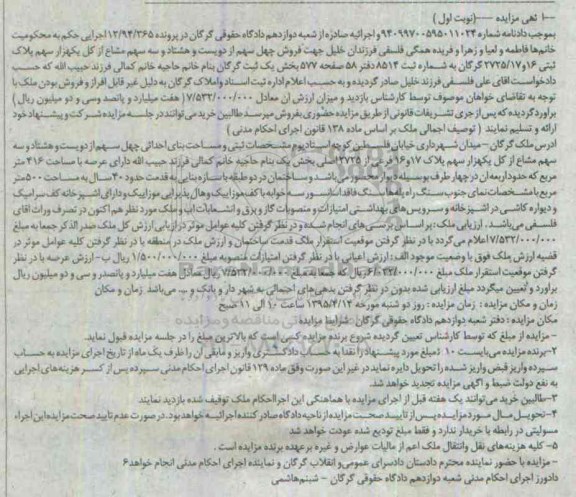 آگهی مزایده ---- (نوبت اول)
بموجب دادنامه شماره ۹۴۰۹۹۷۰۰۵۹۵۰۱۱۰۲۴ و اجرائیه صادره از شعبه دوازدهم دادگاه حقوقی گرگان در پرونده ۱۲/۹۴/۲۶۵ اجرایی حکم به محکومیت
خانم ها فاطمه و لعیا و زهرا و فریده همگی فلسفی فرزندان خلیل جهت فروش چهل سهم از دویست و هشتاد و سه سهم مشاع از کل یکهزار سهم پلاک
ثبتی ۱۶ و ۲۷۲۵/۱۷ گرگان به شماره ثبت ۸۵۱۴ دفتر ۵۸ صفحه ۵۷۷ بخش یک ثبت گرگان بنام خانم حاجیه خانم کمالی فرزند حبیب الله که حسب
دادخواست آقای علی فلسفی فرزند خلیل صادر گردیده و به حسب اعلام اداره ثبت اسناد و املاک گرگان به دلیل غیر قابل افراز و فروش بودن ملک با
توجه به تقاضای خواهان موصوف توسط کارشناس بازدید و میزان ارزش آن معادل ۷/۵۳۲/۰۰۰/۰۰۰ (هفت میلیارد و پانصد وسی و دو میلیون ریال)
برآورد گردیده که پس از جری تشریفات قانونی از طریق مزایده حضوری بفروش میرسد طالبین خرید می توانند در جلسه مزایده شرکت و پیشنهاد خود
ارائه و تسلیم نمایند (توصیف اجمالی ملک بر اساس ماده ۱۳۸ قانون اجرای احکام مدنی)
آدرس ملک گرگان – میدان شهرداری خیابان فلسطین کوچه استادیوم مشخصات ثبتی و مساحت بنای احداثی چهل سهم از دویست و هشتاد و سه
سهم مشاع از کل یکهزار سهم پلاک ۱۷ و ۱۶ فرعی از ۲۷۲۵ اصلی بخش یک بنام حاجیه خانم کمالی فرزند حبیب الله دارای عرصه با مساحت ۴۱۶ متر
مربع که حدود اربعه آن در چهار طرف بوسیله دیوار محصور می باشد و ساختمان در دو طبقه با سازه بنایی به قدمت حدود ۴۰ سال به مساحت ۵۰۰ متر
مربع با مشخصات نمای جنوب سنگ راه پله ها سنگ فاقد آسانسور سه خوابه با کف موزاییک و هال پذیرایی موزاییک و دارای آشپزخانه کف سرامیک
و دیواره کاشی در آشپزخانه و سرویس های بهداشتی امتیازات و منصوبات گاز و برق و انشعابات آب و ملک مورد نظر هم اکنون در تصرف وراث آقای
فلسفی می باشد. ارزیابی ملک: بر اساس بررسی های انجام شده و در نظر گرفتن کلیه عوامل موثر در ارزیابی ارزش کل ملک صدر الذکر جمعا به مبلغ
۷/۵۳۲/۰۰۰/۰۰۰ اعلام می گردد با در نظر گرفتن موقعیت استقرار ملک قدمت ساختمان و ارزش ملک در منطقه با در نظر گرفتن کلیه عوامل موثر در
قضیه ارزش ملک فوق با وضعیت موجود الف: ارزش اعیانی با در نظر گرفتن امتیازات منصوبه مبلغ ۱/۵۰۰/۰۰۰/۰۰۰ ریال ب- ارزش عرصه با در نظر
گرفتن موقعیت استقرار ملک مبلغ ۶/۰۳۲/۰۰۰/۰۰۰ ریال که جمعا به مبلغ ۷/۵۳۲/۰۰۰/۰۰۰ ریال معادل هفت میلیارد و پانصد و سی و دو میلیون ریال
برآورد و تعیین میگردد مبلغ ارزیابی شده بدون در نظر گرفتن بدهی های احتمالی به شهر دار و بانک و ... می باشد. زمان و مکان
زمان و مکان مزایده: زمان مزایده: روز دو شنبه مورخه ۱۳۹۵/۴/۱۴ ساعت ۱۰ الی ۱۱ صبح
مکان مزایده: دفتر شعبه دوازدهم دادگاه حقوقی گرگان شرایط مزایده
- مزایده از مبلغ که توسط کارشناس تعیین گردیده شروع برنده مزایده کسی است که بالاترین مبلغ را در جلسه مزایده قبول نماید.
۲- برنده مزایده می بایست ۱۰٪ مبلغ مورد پیشنهاد را نقدا به حساب دادگستری واریز و مابقی آن را ظرف یک ماه از تاریخ اجرای مزایده به حساب
سپرده واریز قبض واریز شده را تحویل دایره نماید در غیر این صورت وفق ماده ۱۲۹ قانون اجرای احکام مدنی سپرده پس از کسر هزینه های اجرایی
به نفع دولت ضبط و آگهی مزایده تجدید خواهد شد.
۳- طالبین خرید می توانند یک هفته قبل از اجرای مزایده با هماهنگی این اجرا احکام ملک توقیف شده بازدید نمایند
۴- تحویل مال مورد مزایده پس از تایید صحت مزایده از ناحیه دادگاه صادر کننده اجرائیه خواهد بود. در صورت عدم تایید صحت مزایده این اجراء
مسولیتی در رابطه با خریدار ندارد و فقط مبلغ تودیع شده عودت خواهد شد
۵- کلیه هزینه های نقل وانتقال ملک اعم از مالیات عوارض و غیره بر عهده برنده مزایده است.
- مزایده با حضور نماینده محترم دادستان دادسرای عمومی و انقلاب گرگان و نماینده اجرای احکام مدنی انجام خواهد ۶
دادورز اجرای احکام مدنی شعبه دوازدهم دادگاه حقوقی گرگان – شبنم هاشمی